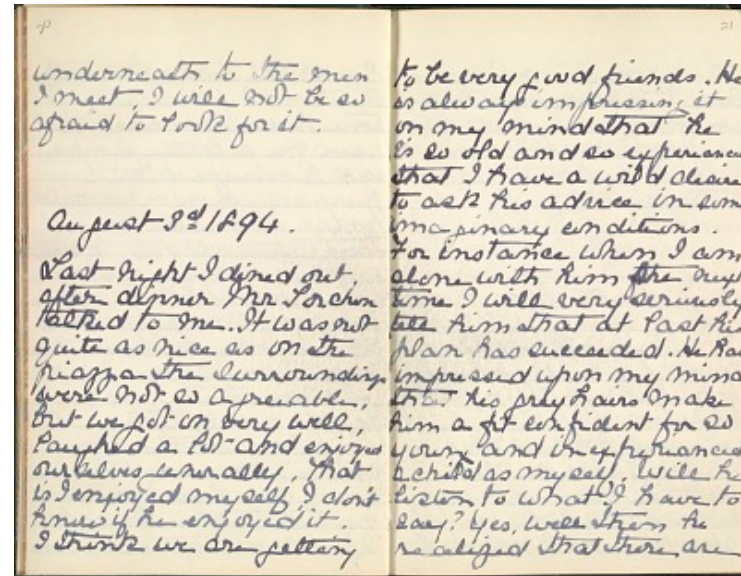 underneath to the men
I meet, I will not be so
afraid to look for it.
August 3rd 1894.
Last night I dined out,
after dinner Mr
talked to me. It was not
quite as nice as on the
piazza the surroundings
were not so agreeable,
but we got on very well,
laughed a lot and enjoyed
ourselves generally, that
is I enjoyed myself, I don't
know if he enjoyed it.
I think we are getting
21
to be very good friends. He
is always impressing it
on my mind that he
is so old and so experienc
that I have a wild desire
to ask his advice in som
imaginary conditions.
For instance when I am
alone with him the next
time I will very seriously
tell him that at last his
plan has succeeded. He has
impressed upon my mind
that his grey hairs make
him a fit confident for so
young and inexperienced
a child as myself, will he
listen to what I have to
say? Yes, well then he
realized that there are